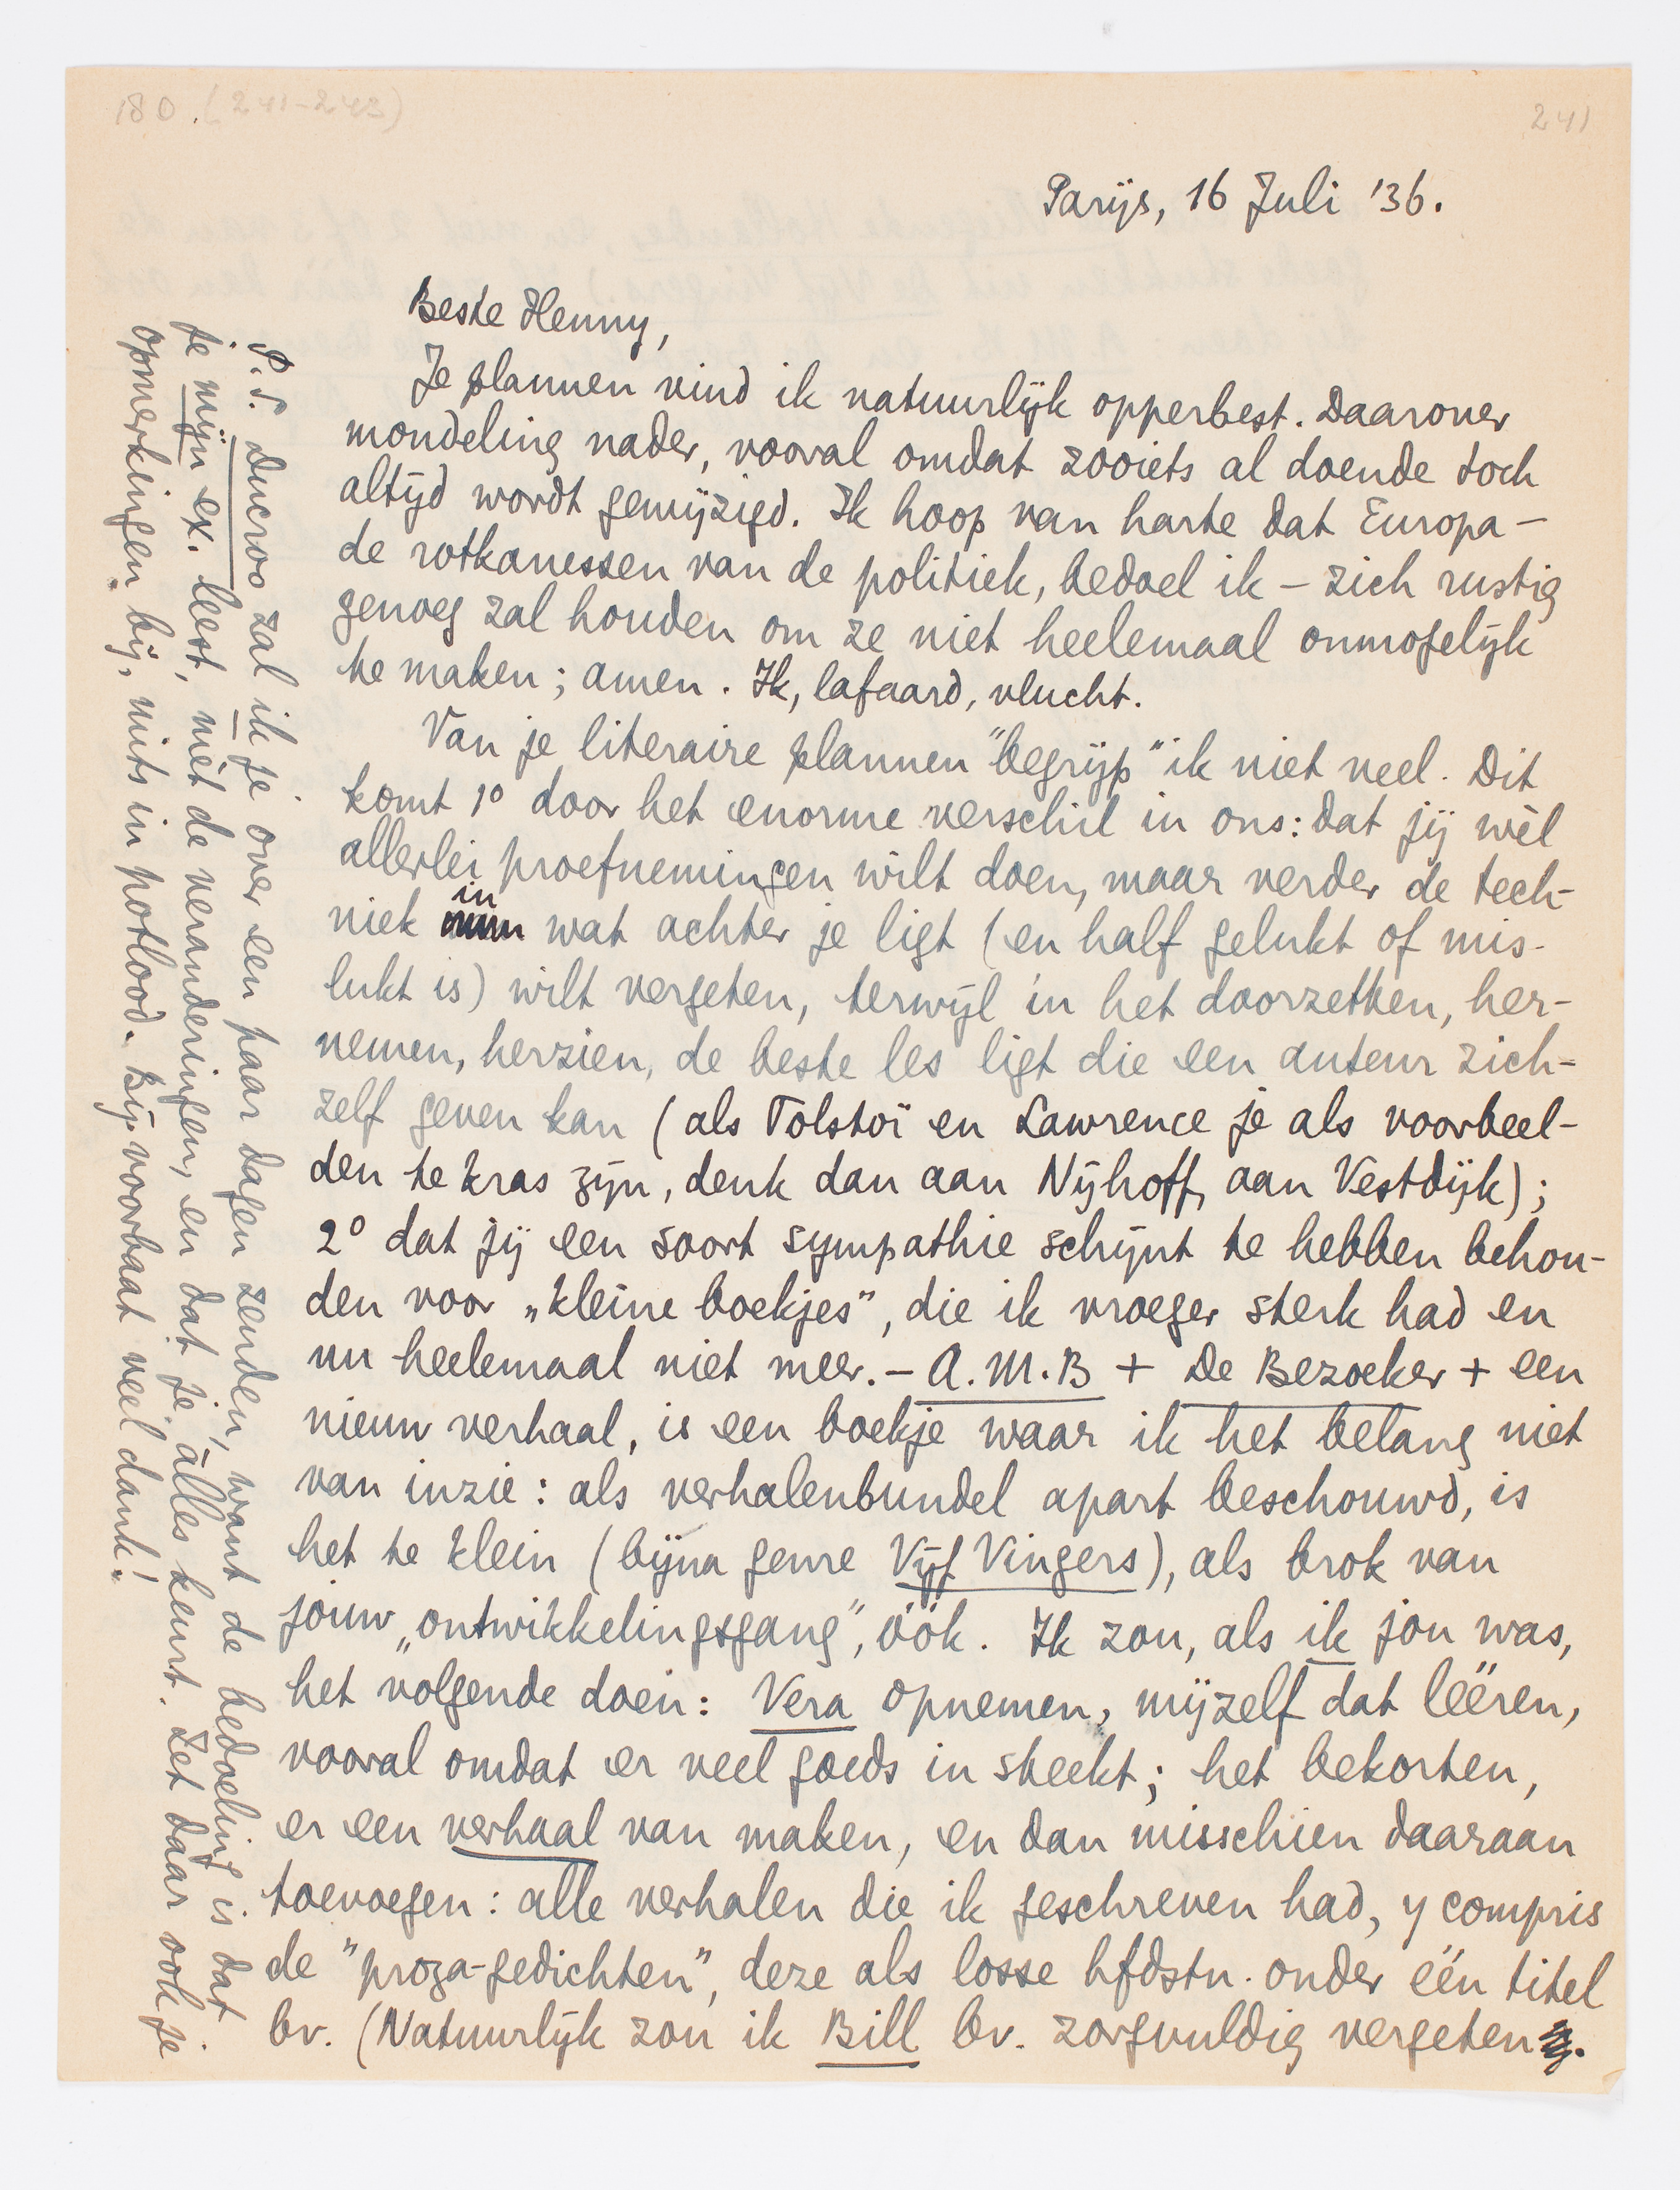 180. (241-243)
241
Parijs, 16 Juli '36.
Beste Henny,
Je plannen vind ik natuurlijk opperbest. Daarover
mondeling nader, vooral omdat zooiets al doende toch
altijd wordt gewijzigd. Ik hoop van harte dat Europa –
de rotkanessen van de politiek, bedoel ik – zich rustig
genoeg zal houden om ze niet heelemaal onmogelijk
te maken; amen. Ik, lafaard, vlucht.
Van je literaire plannen "begrijp" ik niet veel. Dit
komt 1° door het enorme verschil in ons: dat jij wèl
allerlei proefnemingen wilt doen, maar verder de tech-
niek in wat achter je ligt (en half gelukt of mis-
lukt is) wilt vergeten, terwijl in het doorzetten, her-
nemen, herzien, de beste les ligt die een auteur zich-
zelf geven kan (als Tolstoï en Lawrence je als voorbeel-
den te kras zijn, denk dan aan Nijhoff, aan Vestdijk);
2° dat jij een soort sympathie schijnt te hebben behou-
den voor „kleine boekjes", die ik vroeger sterk had en
nu heelemaal niet meer. – A.M.B + De Bezoeker + een
nieuw verhaal, is een boekje waar ik het belang niet
van inzie: als verhalenbundel apart beschouwd, is
het te klein (bijna genre Vijf Vingers), als brok van
jouw „ontwikkelingsgang", óók. Ik zou, als ik jou was,
het volgende doen: Vera opnemen, mijzelf dat léeren,
vooral omdat er veel goeds in steekt; het bekorten,
er een verhaal van maken, en dan misschien daaraan
toevoegen: alle verhalen die ik geschreven had, y compris
de "proza-gedichten", deze als losse hfdstn. onder één titel
bv. (Natuurlijk zou ik Bill bv. zorgvuldig vergeten.
P.S. Ducroo zal ik je over een paar dagen zenden, want de bedoeling is dat
je mijn ex. leest, mèt de veranderingen, en dat je àlles kent. Zet daar ook je
opmerkingen bij, mits in potlood. Bij voorbaat veel dank!